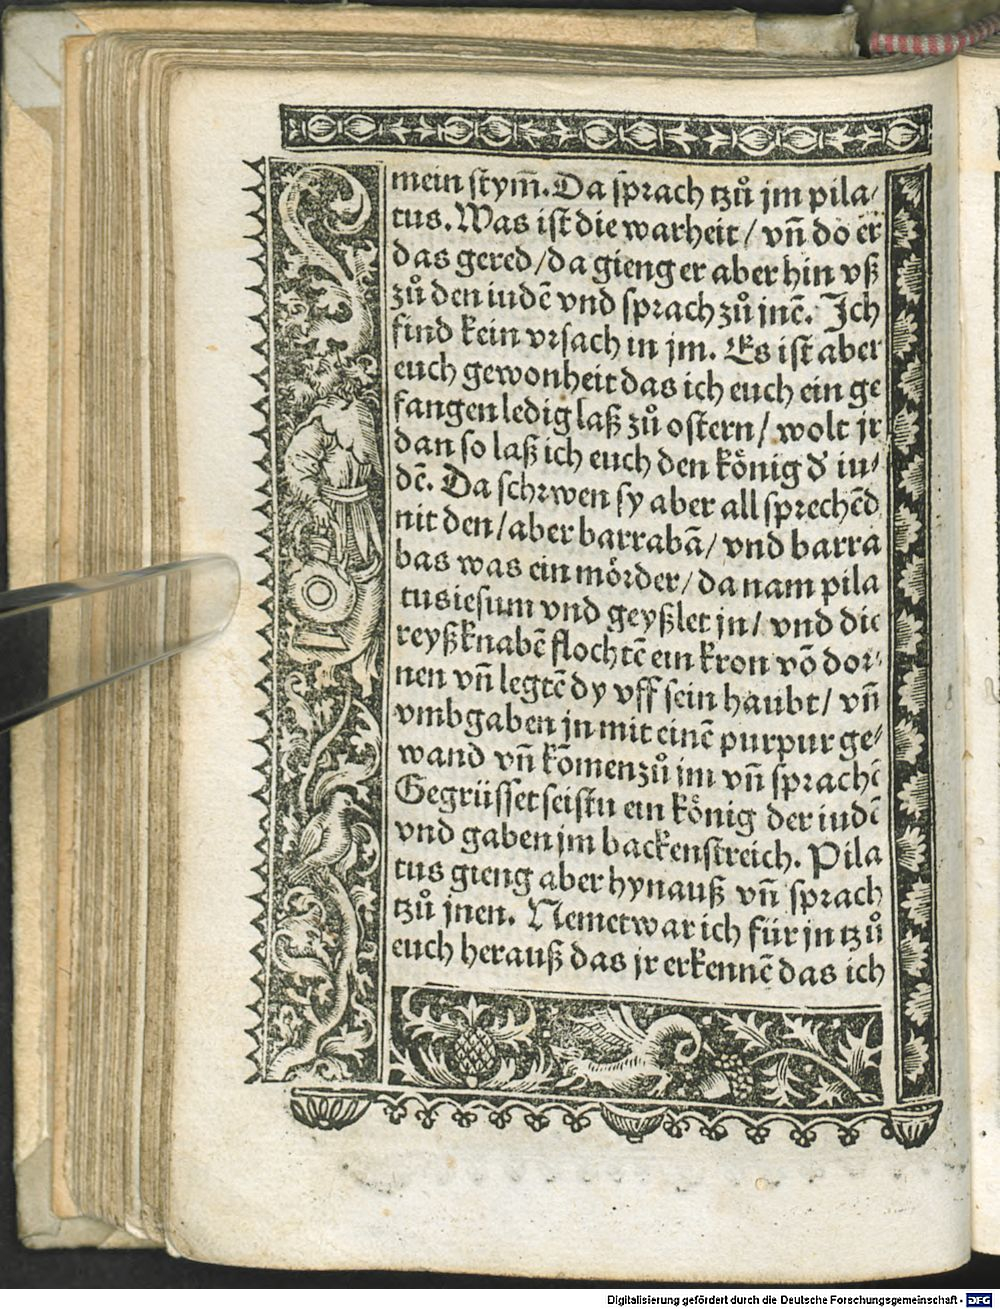 mein stym̄. Da sprach tzů jm pila/
tus. Was ist die warheit / vn̄ do er
das gered / da gieng er aber hin vß
zů den iudē vnd sprach zů jnē. Ich
find kein vrsach in jm. Es ist aber
euch gewonheit das ich euch ein ge
fangen ledig laß zů ostern / wolt jr
dan so laß ich euch den kͤonig dʾ iu/
dē. Da schrwen sy aber all sprechēd
nit den / aber barrabā / vnd barra
bas was ein mörder / da nam pila
tus iesum vnd geyßlet jn / vnd die
reyßknabē flochtē ein kron vō dor/
nen vn̄ legtē dy vff sein haubt / vn̄
vmbgaben jn mit einē purpur ge/
wand vn̄ kōmen zů im vn̄ sprachē
Gegrüsset seistu ein kͤonig der iudē
vnd gaben jm backenstreich. Pila
tus gieng aber hynauß vn̄ sprach
tzů jnen. Nemet war ich für jn tzů
euch herauß das jr erkennē das ich
Digitalisierung gefördert durch die Deutsche Forschungsgemeinschaft - DFG